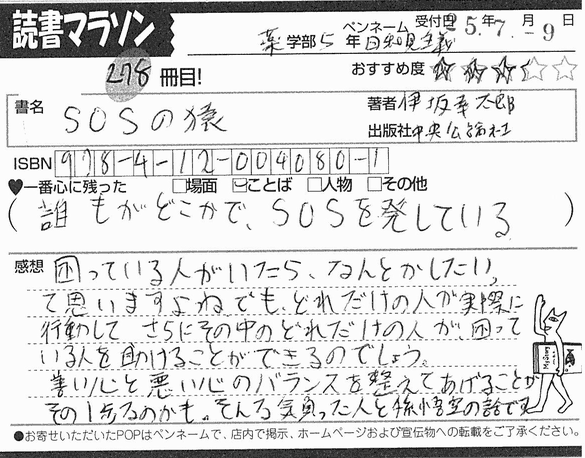 読書マラソン
薬学部5年 ペンネーム 日和見主義 受付日 25年7月-9日
278冊目!
おすすめ度 ★★★☆☆
書名 SOSの猿
著者 伊坂幸太郎
出版社 中央公論社
ISBN 978-4-12-004080-1
♥一番心に残った □場面 ☑ことば □人物 □その他
(誰もがどこかで、SOSを発している)
感想 困っている人がいたら、なんとかしたい、
て思いますよねでも、どれだけの人が実際に
行動して さらにその中のどれだけの人が、困って
いる人を助けることができるのでしょう。
善い心と悪い心のバランスを整えてあげることが
その1歩なのかも。そんな気負った人と孫悟空の話です
●お寄せいただいたPOPはペンネームで、店内で掲示、ホームページおよび宣伝物への転載をご了承ください。